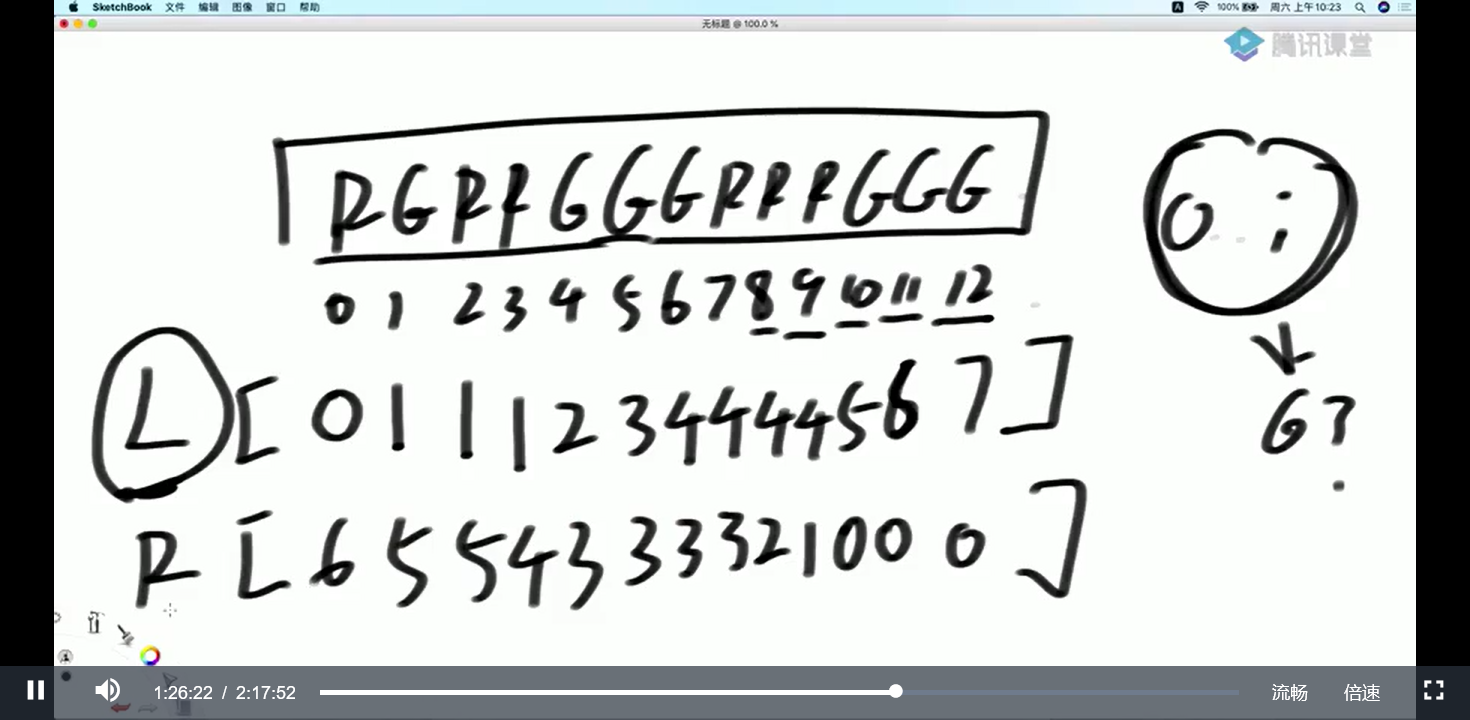 SketchBook 文件 编辑 图像 窗口 帮助 A 100% 周六 上午10:23
无标题 @ 100.0 %
腾讯课堂
R G R R G G G R R R G G G
0 i
0 1 2 3 4 5 6 7 8 9 10 11 12
L [ 0 1 1 1 2 3 4 4 4 4 5 6 7 ]
G ?
R [ 6 5 5 4 3 3 3 3 2 1 0 0 0 ]
1:26:22 / 2:17:52 流畅 倍速